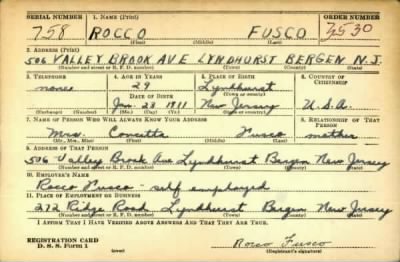 SERIAL NUMBER 1. NAME (Print) ORDER NUMBER
758 ROCCO FUSCO 3530
(First) (Middle) (Last)
2. ADDRESS (Print)
506 VALLEY BROOK AVE LYNDHURST BERGEN N.J.
(Number and street or R. F. D. number) (Town) (County) (State)
3. TELEPHONE 4. AGE IN YEARS 5. PLACE OF BIRTH 6. COUNTRY OF CITIZENSHIP
none 29 Lyndhurst
DATE OF BIRTH (Town or county)
Jan. 23 1911 New Jersey U.S.A.
(Exchange) (Number) (Mo.) (Day) (Yr.) (State or country)
7. NAME OF PERSON WHO WILL ALWAYS KNOW YOUR ADDRESS 8. RELATIONSHIP OF THAT PERSON
Mrs. Concetta Fusco mother
(Mr., Mrs., Miss) (First) (Middle) (Last)
9. ADDRESS OF THAT PERSON
506 Valley Brook Ave Lyndhurst Bergen New Jersey
(Number and street or R. F. D. number) (Town) (County) (State)
10. EMPLOYER'S NAME
Rocco Fusco - self employed
11. PLACE OF EMPLOYMENT OR BUSINESS
272 Ridge Road Lyndhurst Bergen New Jersey
(Number and street or R. F. D. number) (Town) (County) (State)
I AFFIRM THAT I HAVE VERIFIED ABOVE ANSWERS AND THAT THEY ARE TRUE.
REGISTRATION CARD
D. S. S. Form 1 (over) Rocco Fusco
(Registrant's signature)